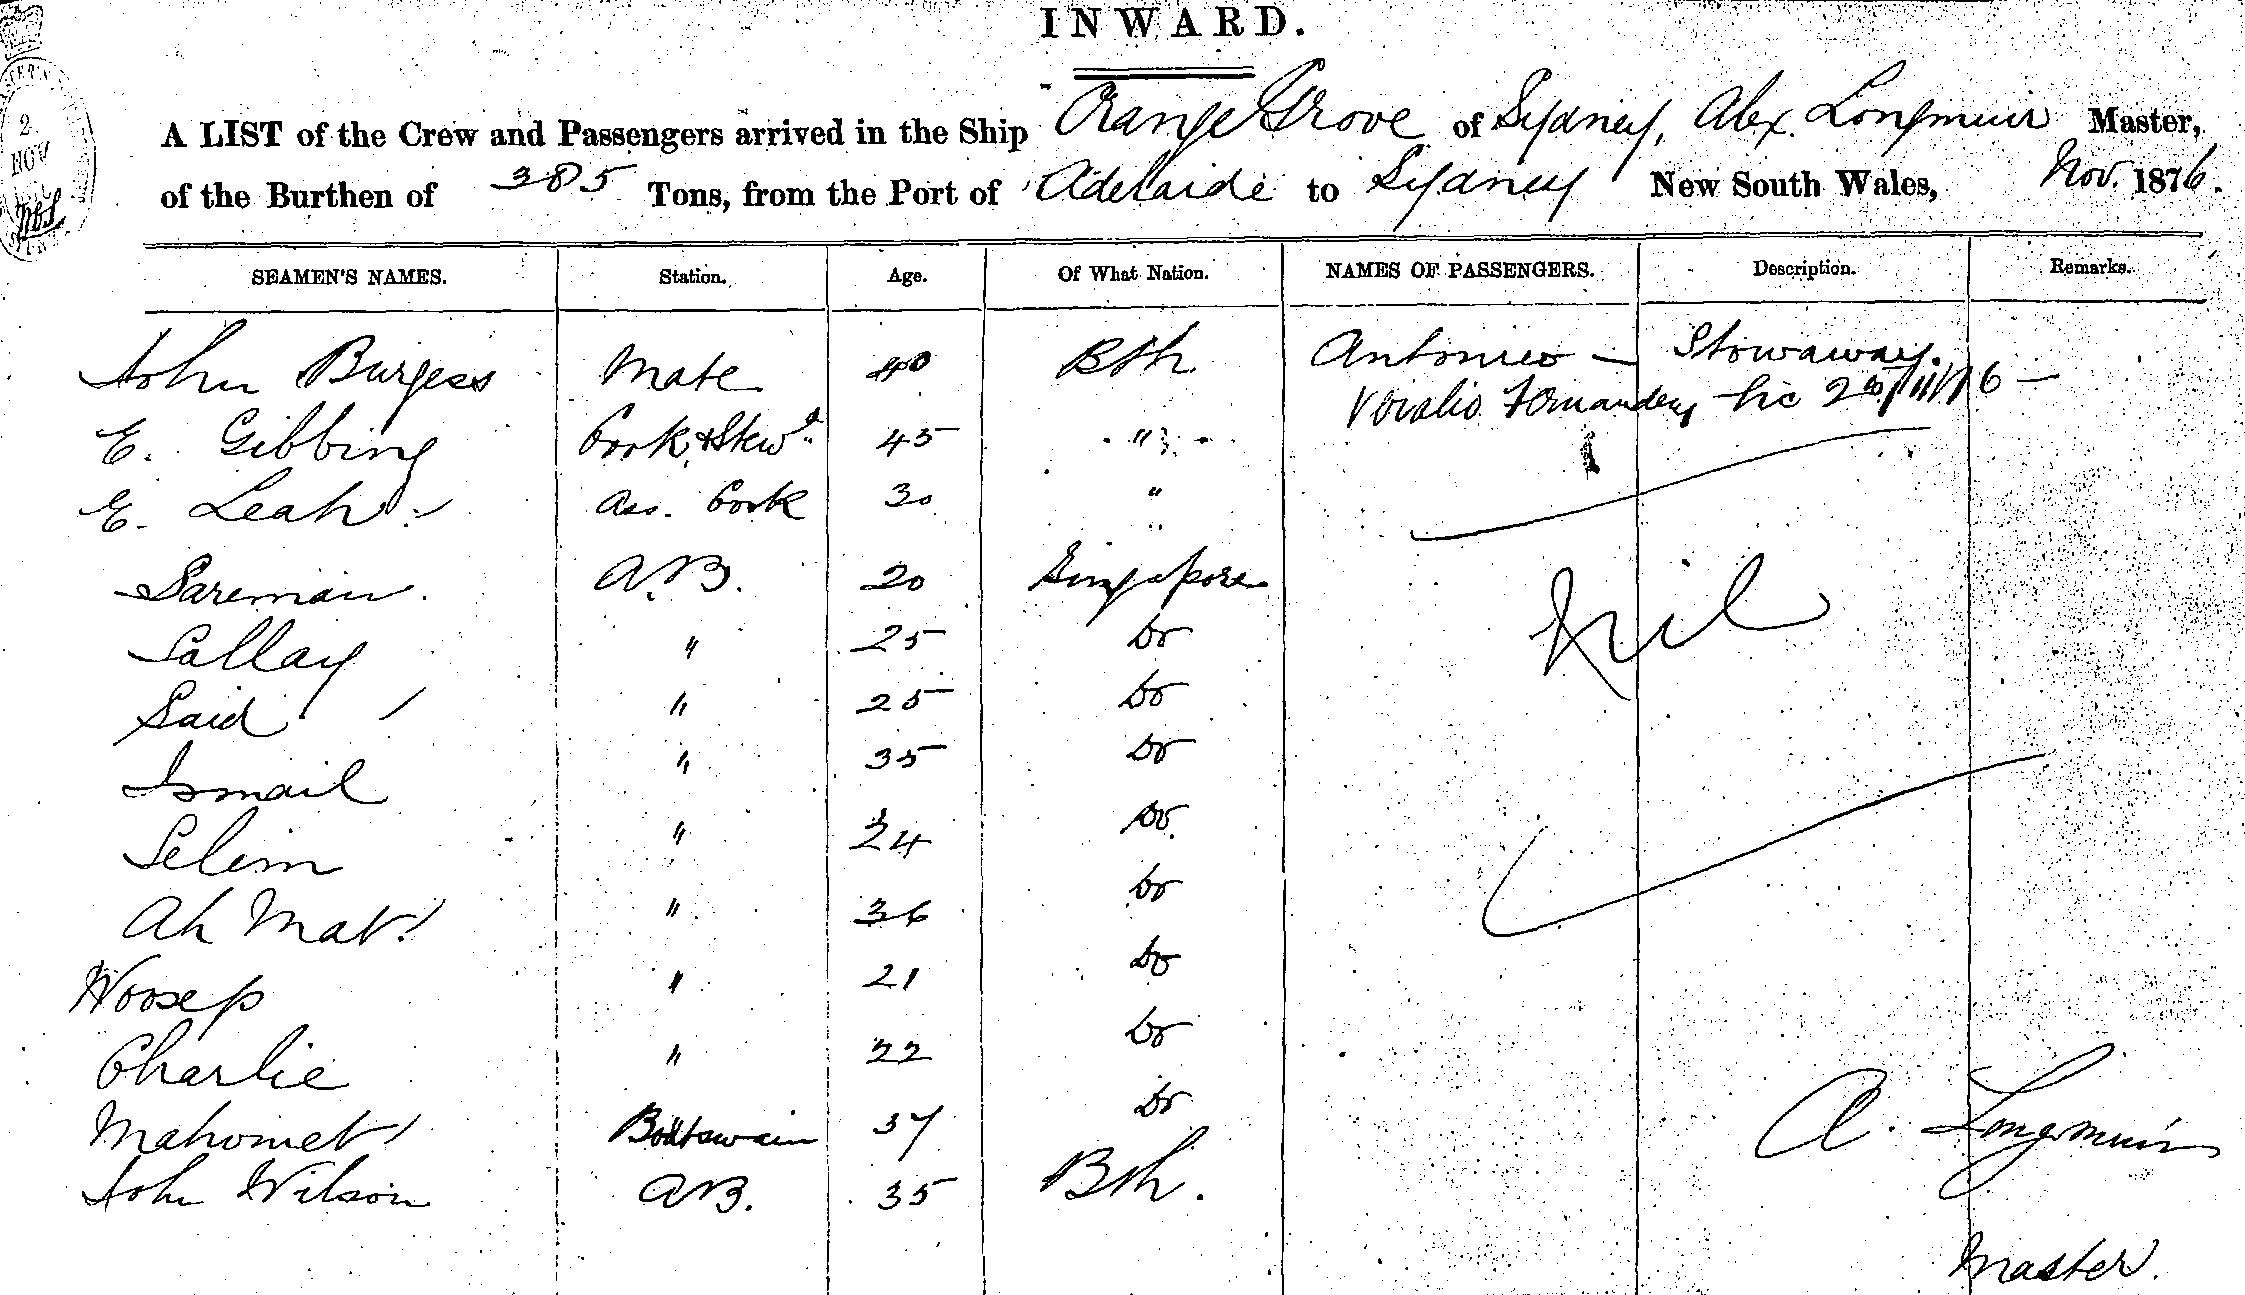 INWARD.
A LIST of the Crew and Passengers arrived in the Ship Orange Grove of Sydney, Alex. Longmuir Master,
of the Burthen of 385 Tons, from the Port of Adelaide to Sydney New South Wales, Nov. 1876.
2
NOV
SEAMEN'S NAMES. Station. Age. Of What Nation. NAMES OF PASSENGERS. Description. Remarks.
John Burgess Mate 40 Bsh Antonieo — Stowaway.
Fernandez
E. Gibbing Cook & Stewd 45 "
E. Leah Ass. Cook 30 "
Sareman A.B. 20 Singapore
Nil
Sallay " 25 Do
Said " 25 Do
Ismail " 35 Do
Selim " 24 Do
Ah Mat " 36 Do
Woosep " 21 Do
Charlie " 22 Do
Mahomet Boatswain 37 Do
A. Longmuir
John Wilson AB. 35 Bsh.
Master.